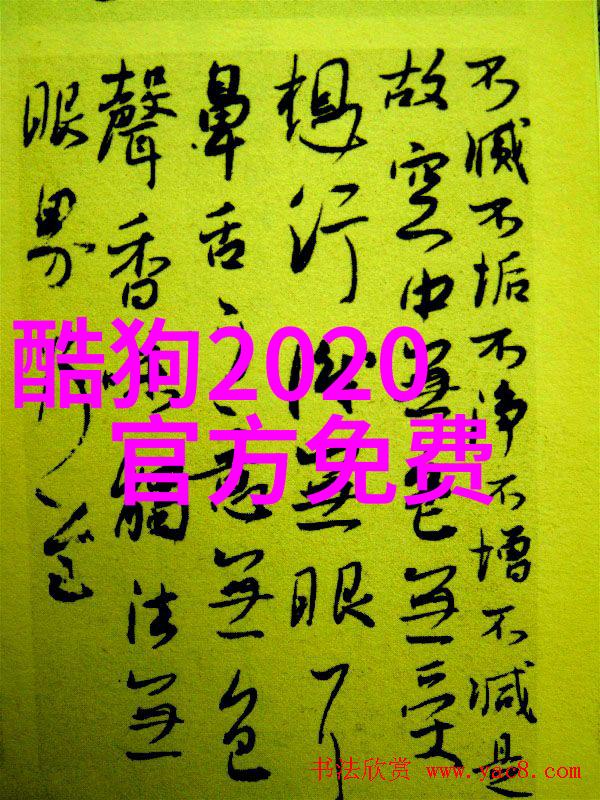 不滅不垢不净不增不减是
故空中無色無受
想行識無眼耳
鼻舌身意無色
聲香味觸法無
眼界
酷狗2020
官方免费
书法欣赏 www.yac8.com